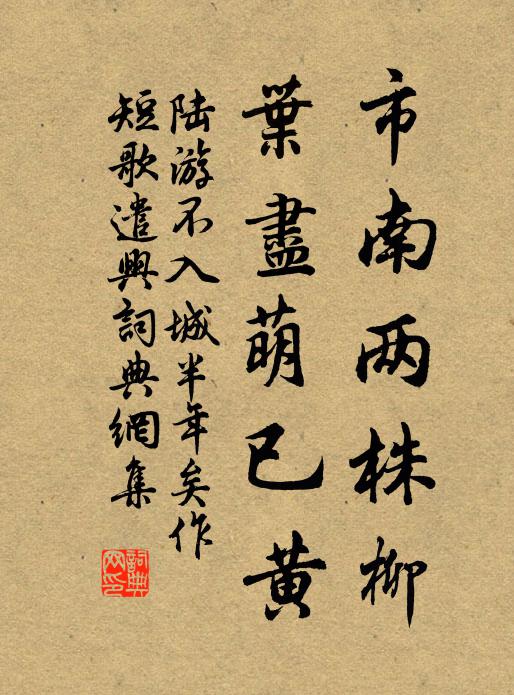 市南两株柳
葉盡萌已黄
陆游不入城半年矣作
短歌遣興詞典網集
詞典網印